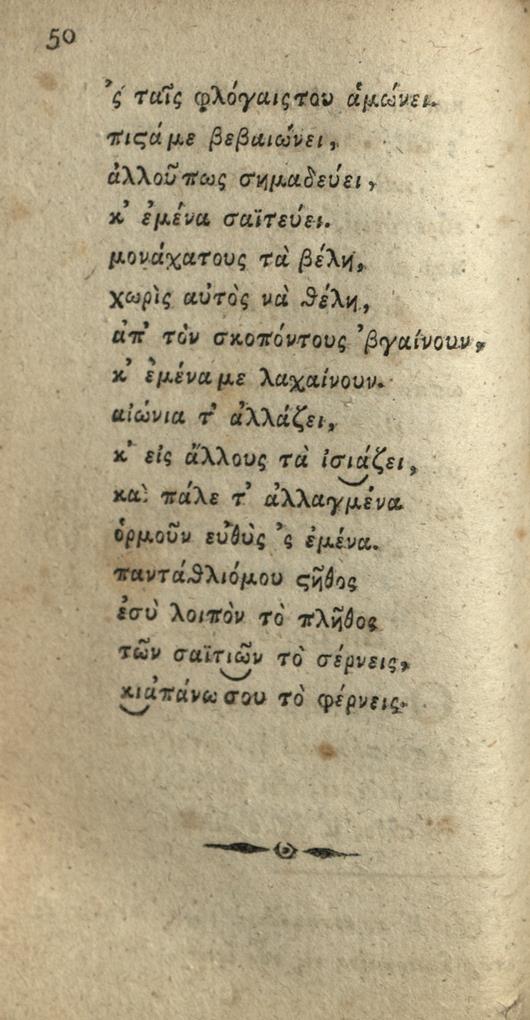 50
'ς ταῖς φλόγαιςτου ἀμώνει.
πιϛάμε βεβαιώνει,
ἀλλοῦπως σημαδεύει,
κ' ἐμένα σαϊτεύει.
μονάχατους τὰ βέλη,
χωρὶς αὐτὸς νὰ θέλη,
ἀπ' τὸν σκοπόντους 'βγαίνουν,
κ' ἐμέναμε λαχαίνουν.
αἰώνια τ' ἀλλάζει,
κ' εἰς ἄλλους τὰ ἰσιάζει,
καὶ πάλε τ' ἀλλαγμένα
ὁρμοῦν εὐθὺς 'ς ἐμένα.
παντάθλιόμου ϛῆθος
ἐσὺ λοιπὸν τὸ πλῆθος
τῶν σαϊτιῶν τὸ σέρνεις,
κιἀπάνωσου τὸ φέρνεις.